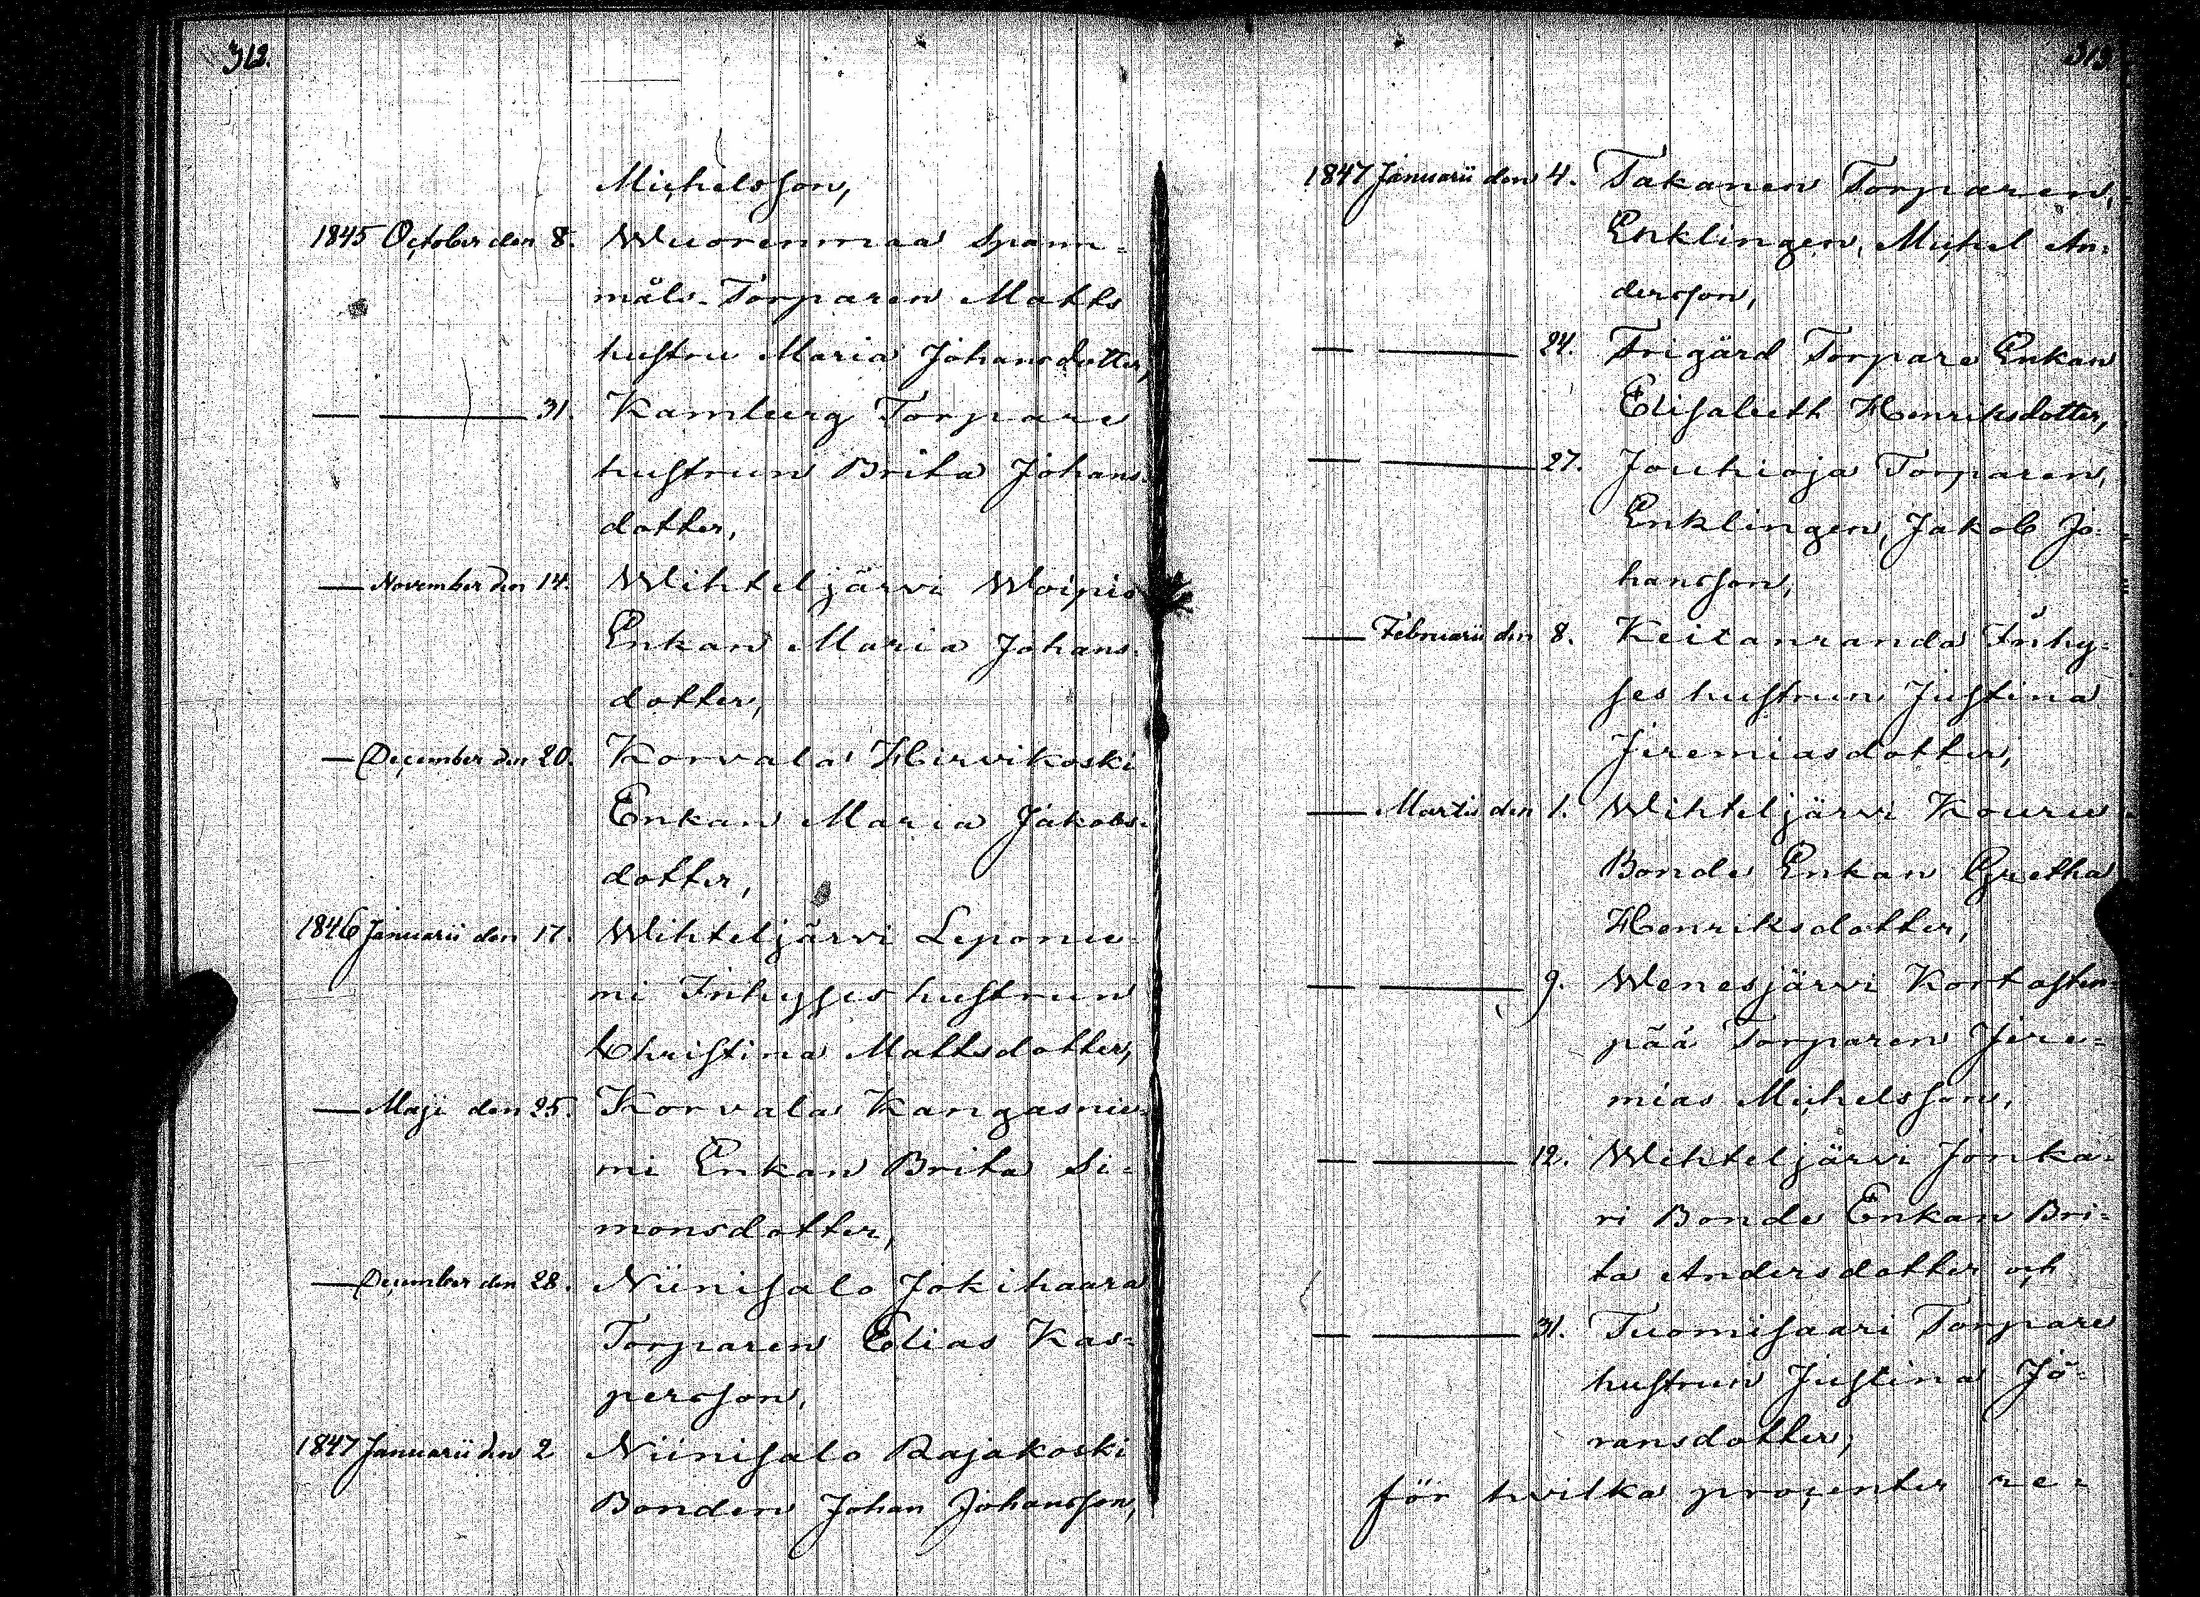 312.
Michelsson,
1845 October den 8. Wuorenmaa Spann=
måls-Torparen Matts
hustru Maria Johansdotter,
— — 31. Kamberg Torpare
hustrun Brita Johans=
dotter,
— November den 14. Wihteljärvi Woipio
Enkan Maria Johans=
dotter,
— December den 20. Korvala Hirvikoski
Enkan Maria Jakobs=
dotter,
1846 Januarii den 17. Wihteljärvi Leponie=
mi Inhysses hustrun
Christina Mattsdotter,
— Maji den 25. Korvala Kangasnie=
mi Enkan Brita Si=
monsdotter,
— December den 28. Niinisalo Jokihaara
Torparen Elias Kas=
persson,
1847 Januarii den 2 Niinisalo Rajakoski
Bonden Johan Johansson,
313
1847 Januarii den 4. Takanen Torparen,
Enklingen, Michel An=
dersson,
— — 24. Frigård Torpare Enkan
Elisabeth Henriksdotter,
— — 27. Jouhioja Torparen,
Enklingen, Jakob Jo=
hansson,
— Februarii den 8. Keitanranda Inhy=
ses hustrun Justina
Jeremiasdotter,
— Martii den 1. Wihteljärvi Kouru
Bonde Enkan Gretha
Henriksdotter,
— — 9. Wenesjärvi Kortasten=
pää Torparen Jere=
mias Michelsson,
— — 12. Wihteljärvi Jonka=
ri Bonde Enkan Bri=
ta Andersdotter och
— — 31. Tuomisaari Torpare
hustrun Justina Jö=
ransdotter;
för hvilka procenter re=